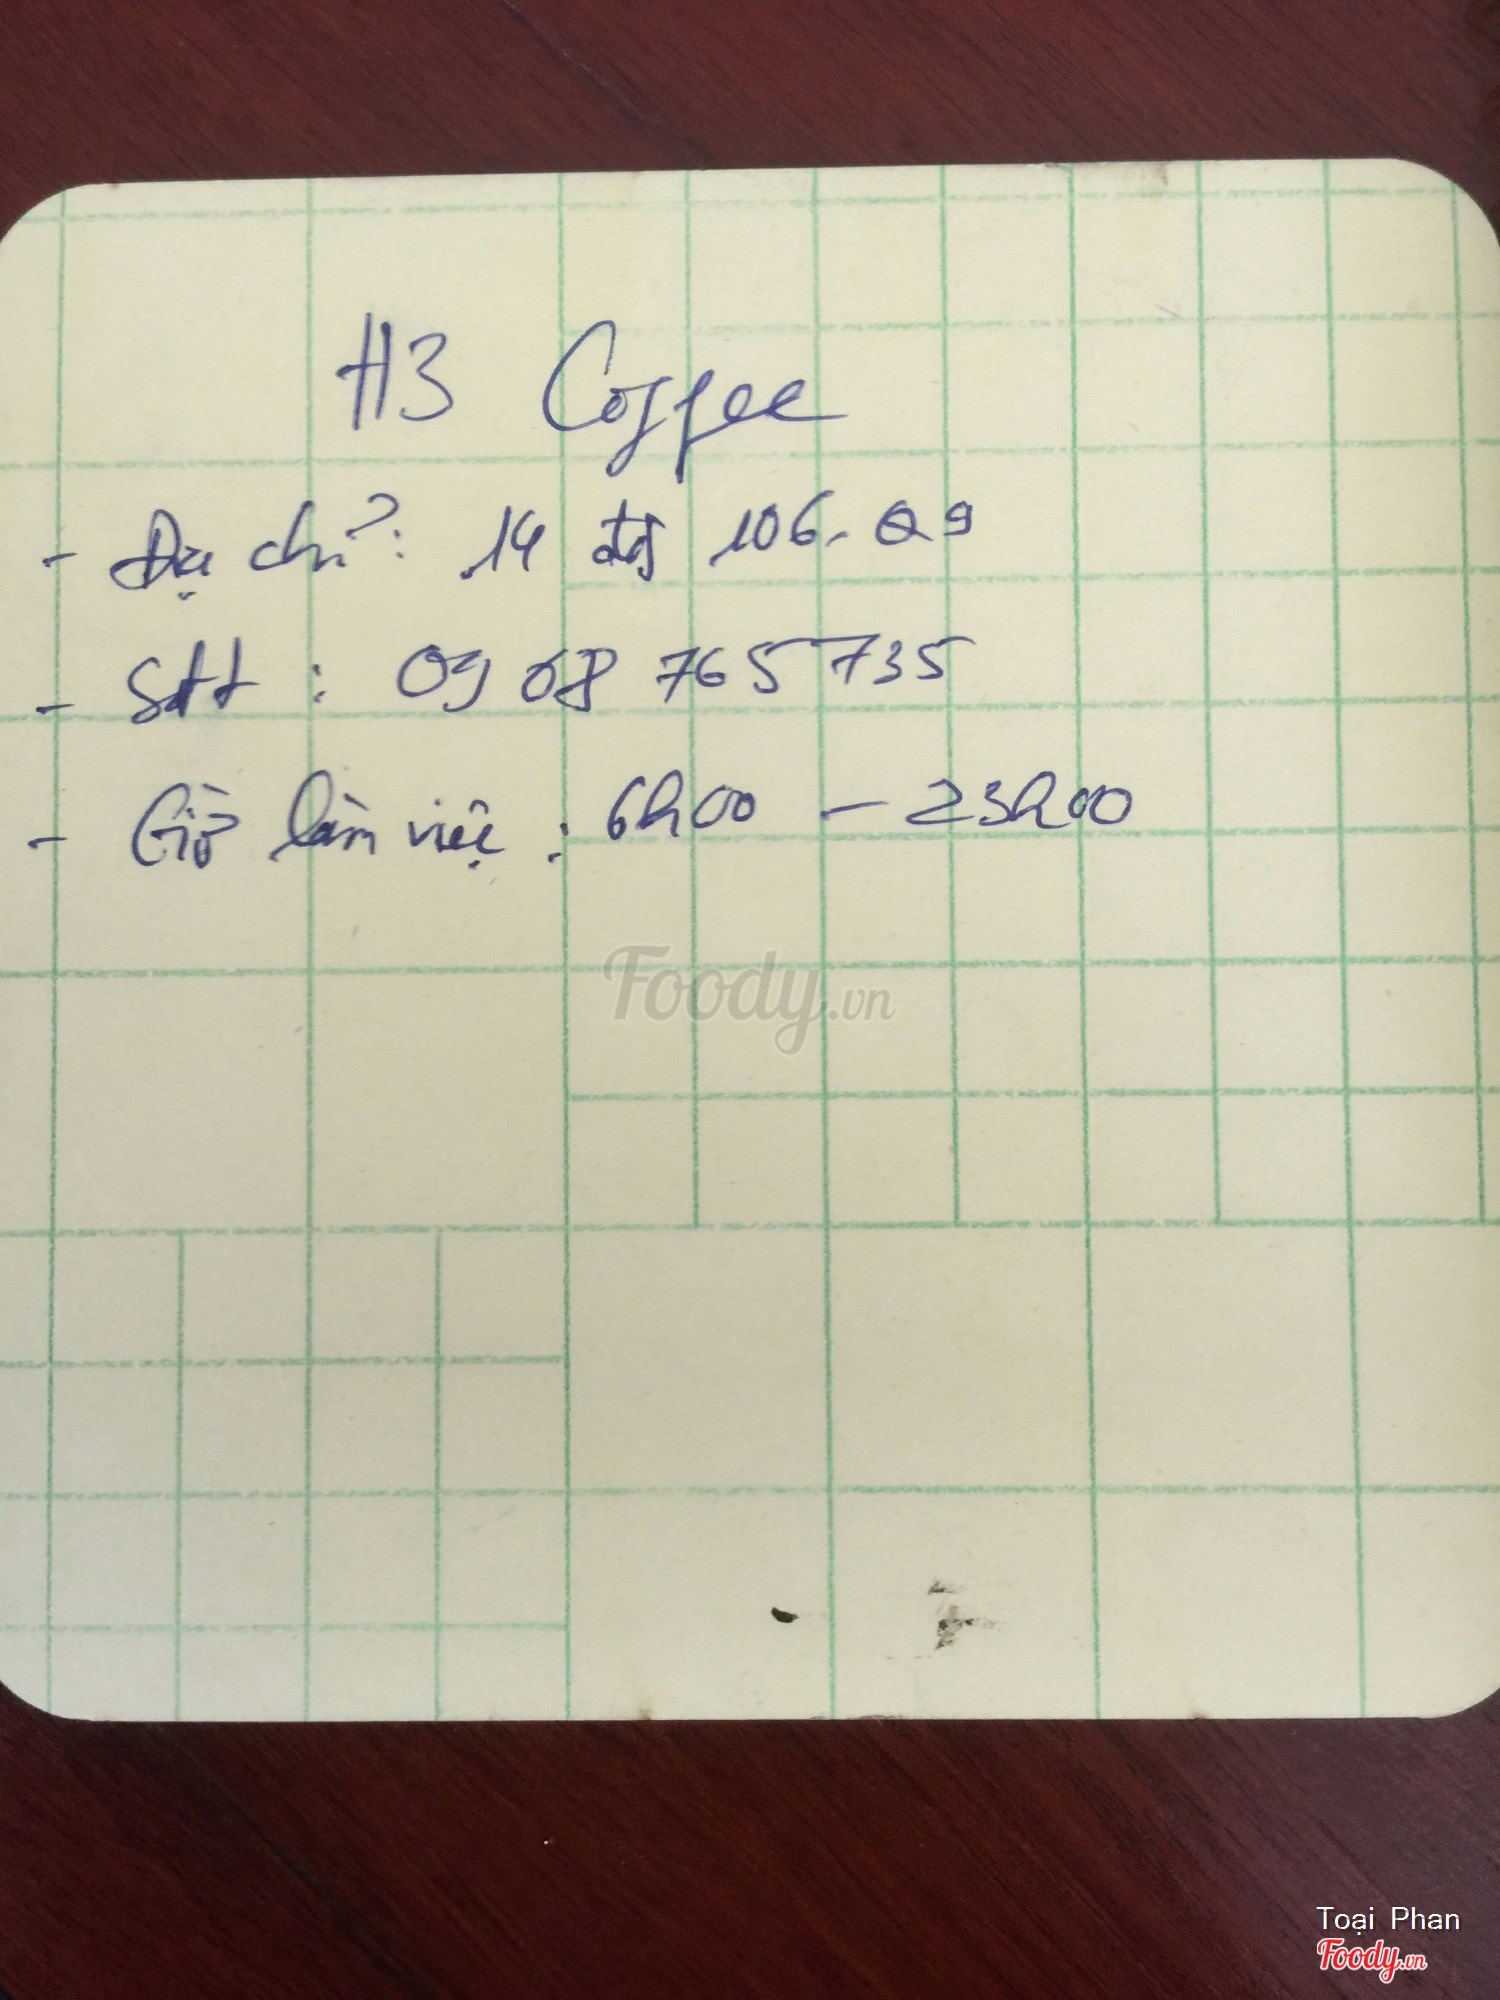 H3 Coffee
- Địa chỉ: 14 đg 106. Q9
- Sđt : 0968 765735
- Giờ làm việc : 6h00 - 23h00
Foody.vn
Toại Phan
Foody.vn